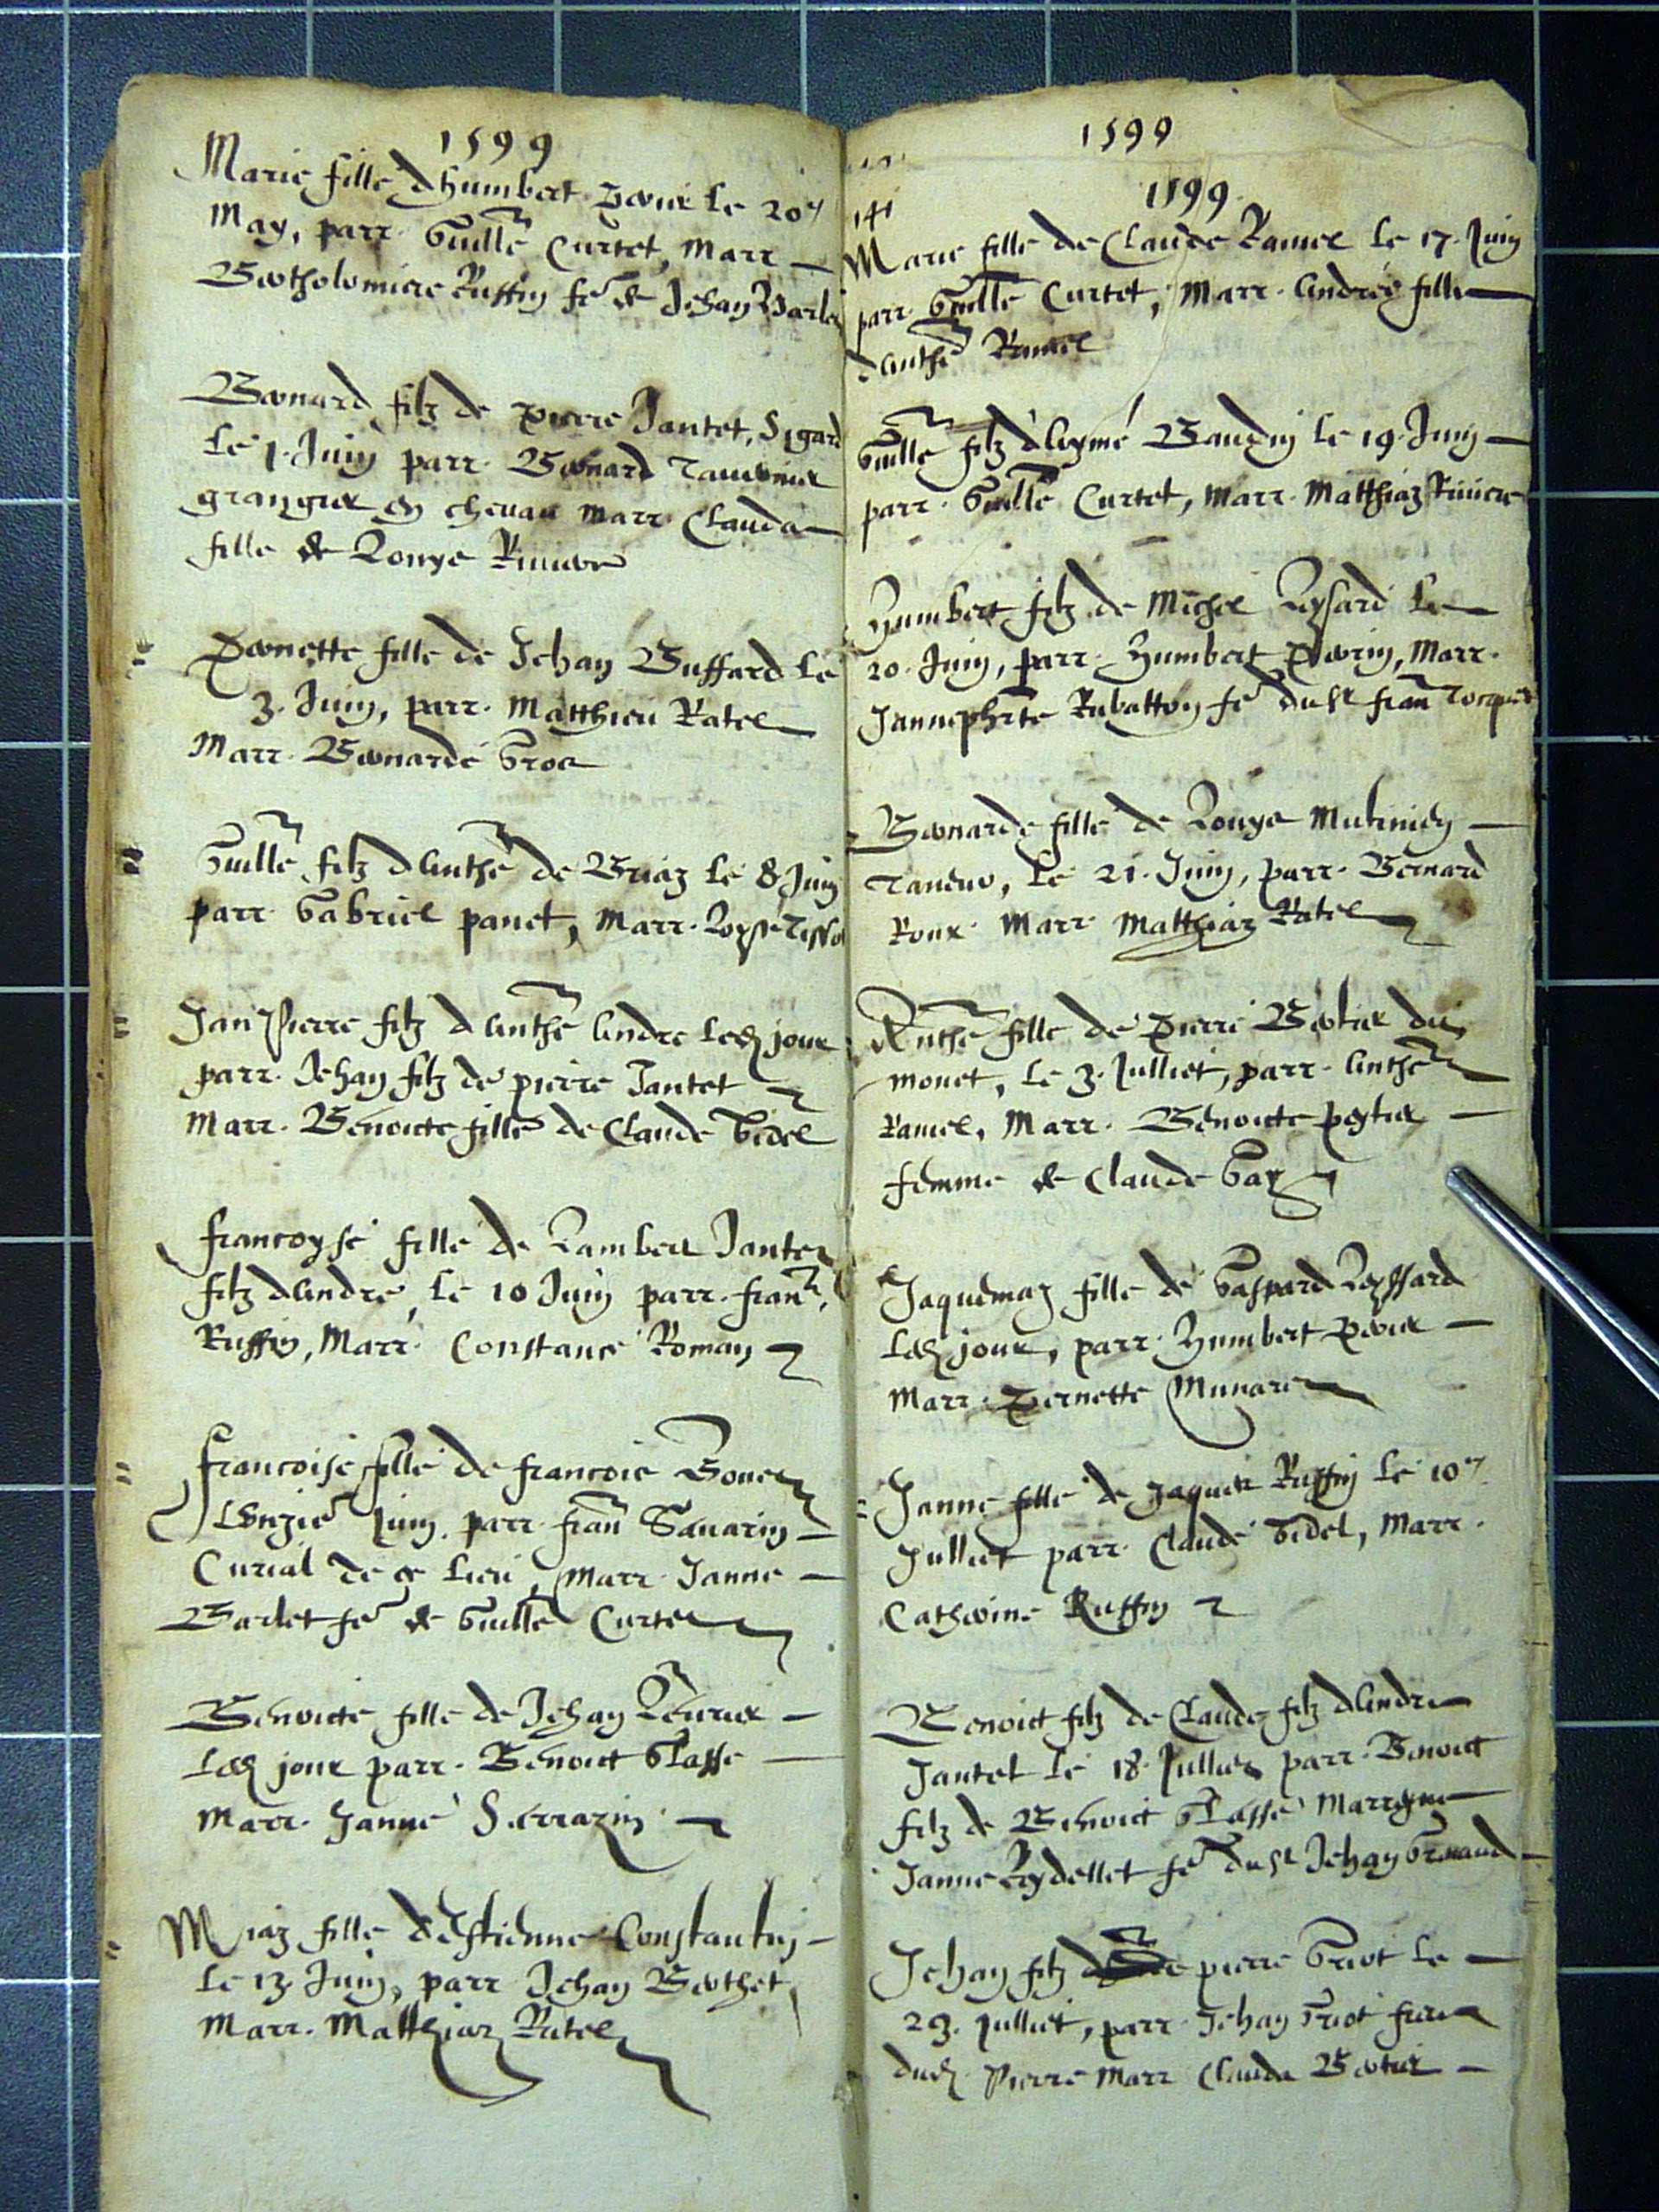 1599
Marie fille dhumbert Perier le 20
May, parr. Guille Curtet, Marr
Bartholomiere Ruffin fe de Jehan Barle
Bernard filz de pierre Jantet, Sigard
Le 1. Juin parr. Bernard Tavernier
grangier en chevau Marr. Clauda
fille de Louys Rivier
Pernette fille de Jehan Buffard le
3. Juin, parr. Matthieu Ratel
Marr. Bernarde Groa
Guille filz d Anthe de Briaz le 8 Juin
parr. Gabriel panet, Marr. Loyse Tisso
Jan Pierre filz d Anthe Andre led jour
parr. Jehan filz de pierre Jantet
Marr. Benoicte fille de Claude Gidel
francoyse fille de Lambert Jantet
filz dAndre, le 10 Juin parr. fran
Ruffin, Marr. Constance Roman
francoise fille de francois Bonet
Lunzie Juin. parr. fran Savarin
Curial de ce lieu, Marr. Janne
Barlet fe de Guille Curtet
Benoicte fille de Jehan
Led jour parr. Benoict Glasse
Marr. Janne Serrazin
Miaz fille dEstienne Constantin
Le 13. Juin, parr Jehan Berthet
Marr. Matthiaz Ratel
1599
1599
Marie fille de Claude Ramel le 17. Juin
parr. Guille Curtet, Marr. Andree fille
dAnthe Ramel
Guille filz dAyme Baudin le 19. Juin
parr. Guille Curtet, Marr. Matthiaz Riviere
Humbert filz de Michel Leysard le
20. Juin, parr. Humbert Perrin, Marr.
Rubatton fe du Sr fran
Bernarde fille de Louys
le 21. Juin, parr. Bernard
Roux Marr Matthiaz Ratel
Anthe fille de Pierre Bertier du
monet, le 3. Julliet, parr. Anthe
Ramel, Marr. Benoicte
femme de Claude Gay
Jaquemaz fille de Gaspard Leyssard
Led jour, parr. Humbert Perier
Marr. Pernette Munaret
Janne fille de Jaques Ruffin le 10
Julliet parr. Claude Gidel, Marr.
Catherine Ruffin
Benoict filz de Claude filz dAndre
Jantet le 18. Julliet parr. Benoict
filz de Benoict Glasse Marryne
Janne Reydellet fe du Sr Jehan
Jehan filz de pierre Griot le
23. Julliet, parr. Jehan Griot frere
dud. Pierre Marr Clauda Bertier